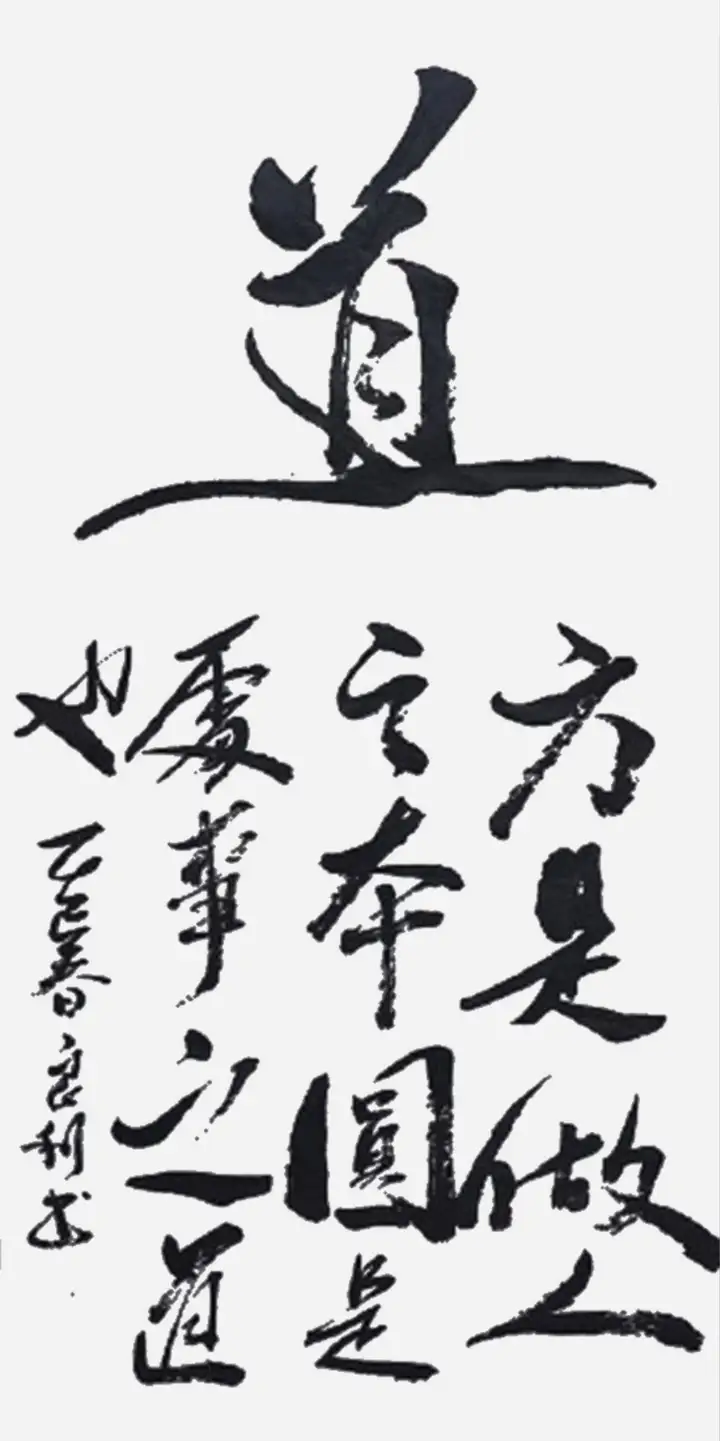 道
方是做人
之本圓是
處事之道
也
乙巳春良利书